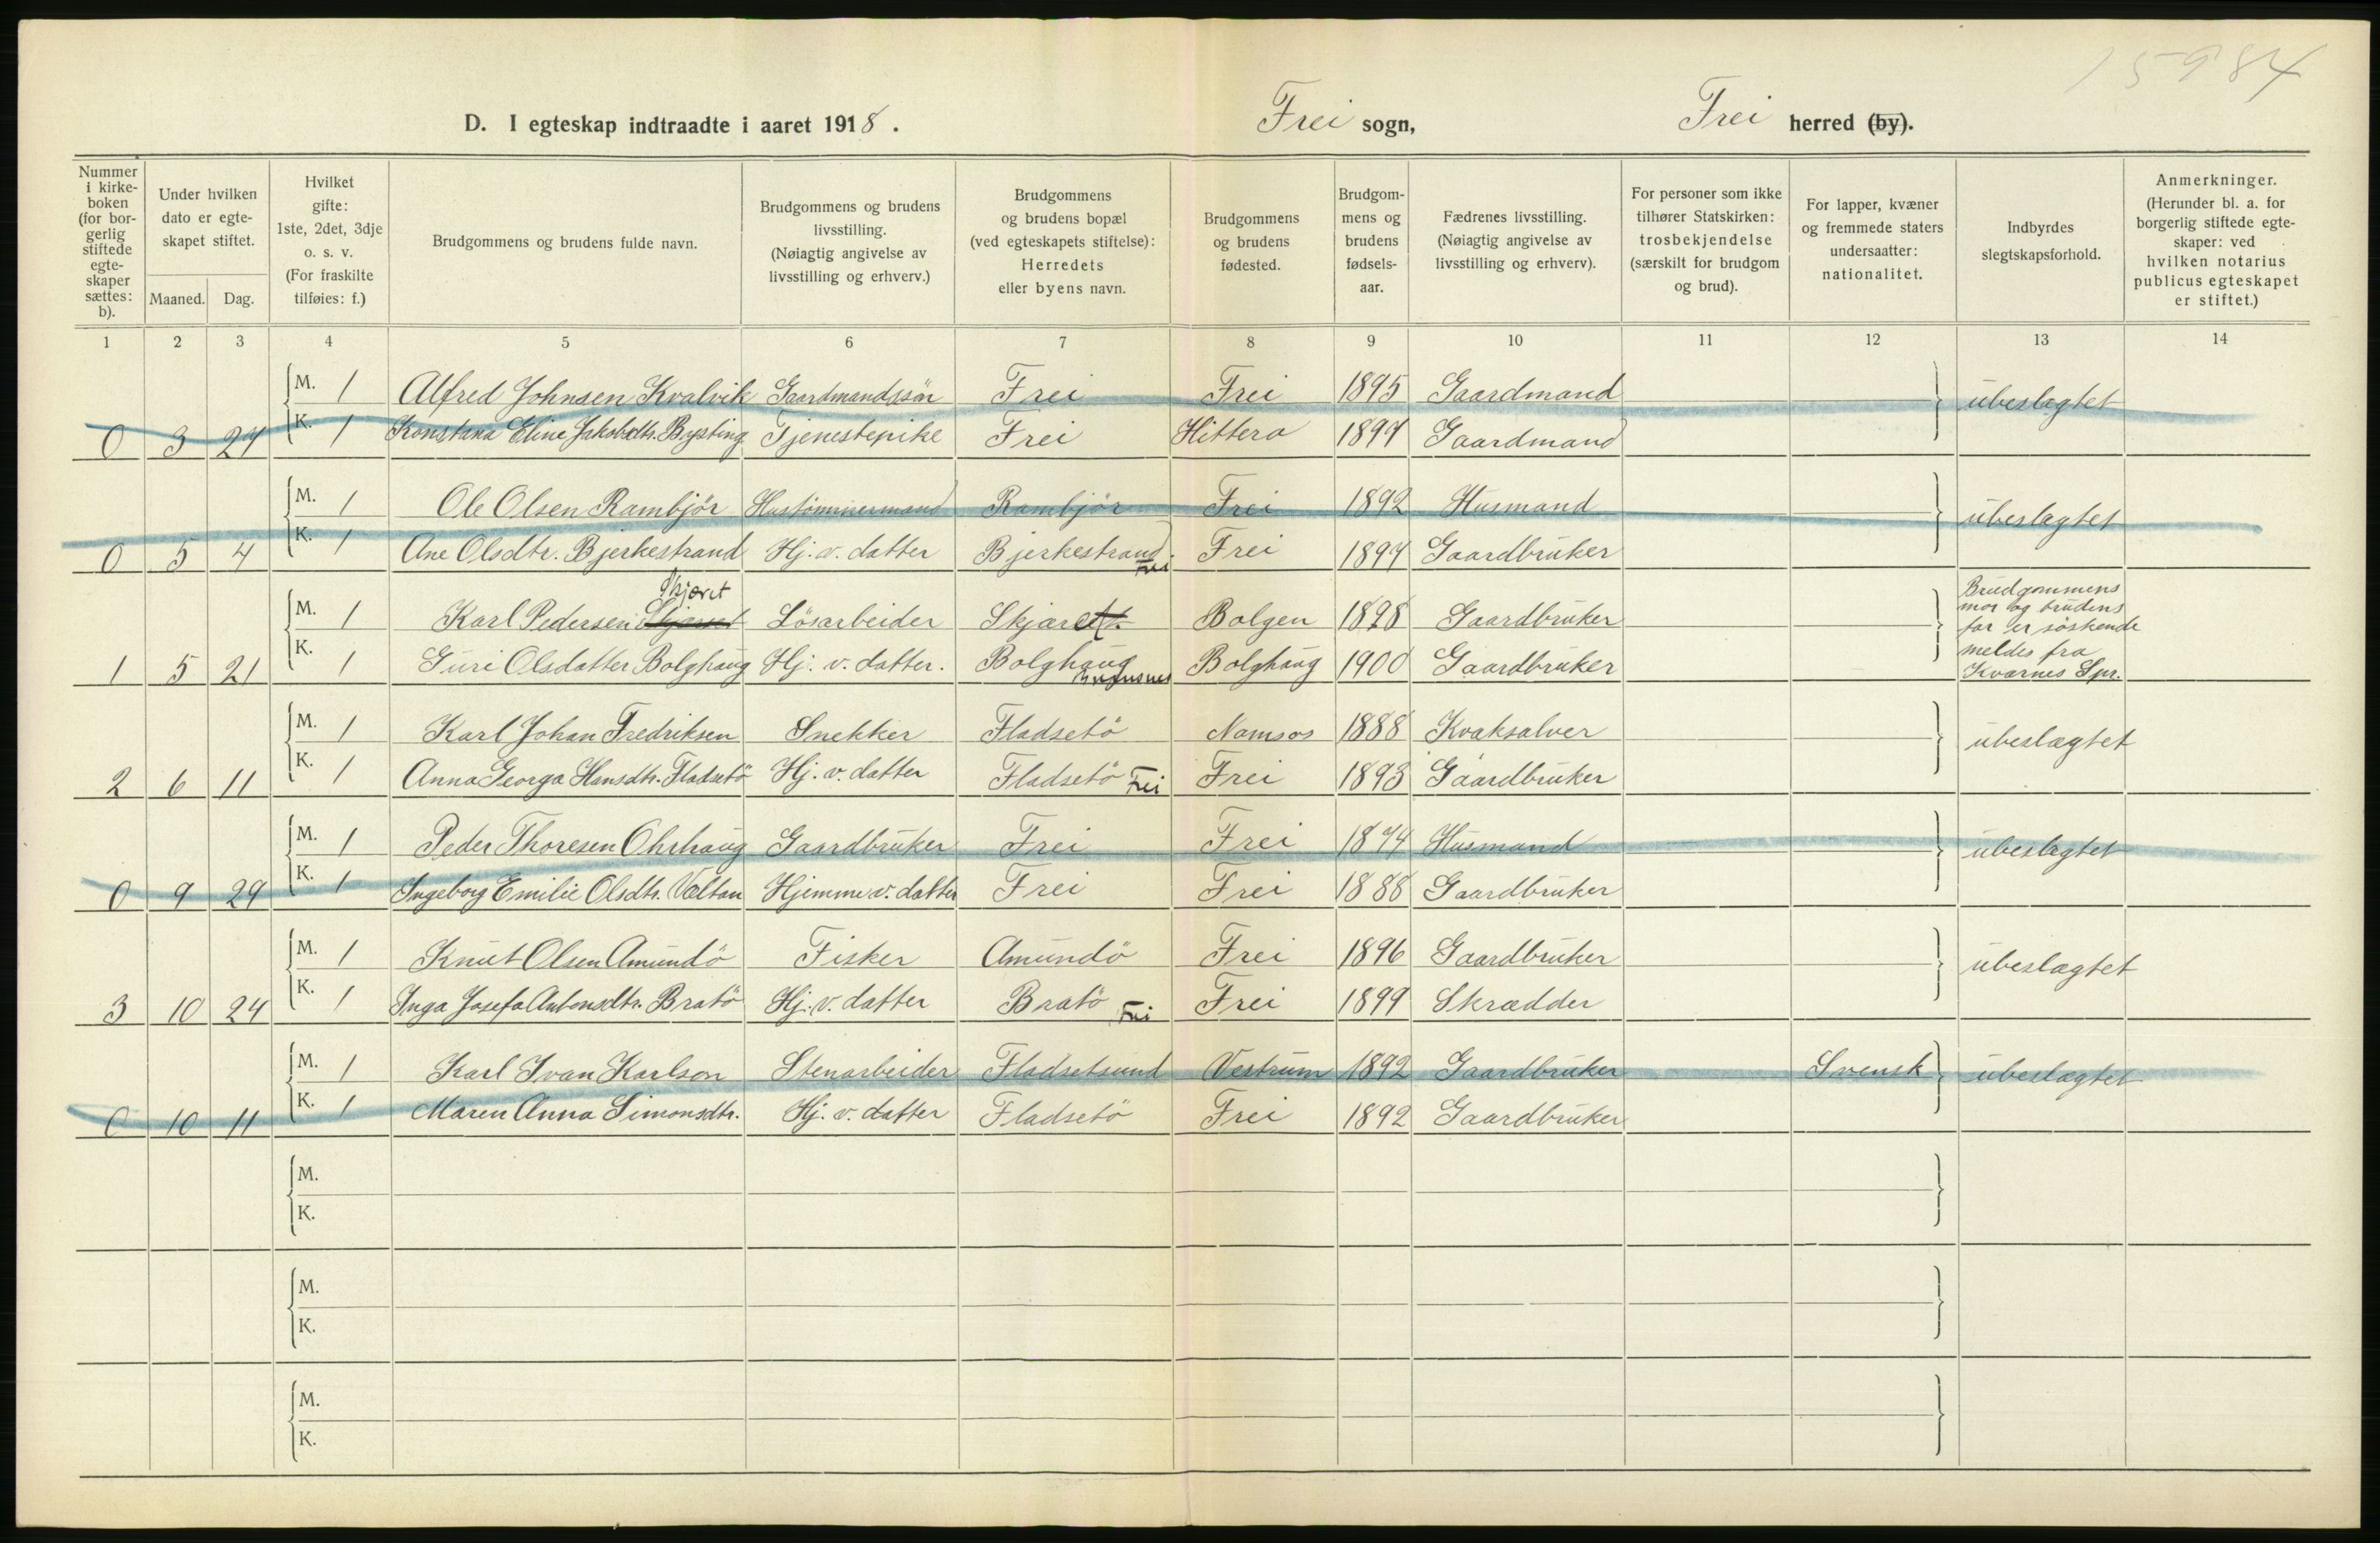 15984
D. I egteskap indtraadte i aaret 1918. Frei sogn, Frei herred (by).
Nummer i kirkeboken (for borgerlig stiftede egteskaper sættes: b).
Under hvilken dato er egteskapet stiftet.
Maaned. Dag.
Hvilket gifte: 1ste, 2det, 3dje o. s. v. (For fraskilte tilføies: f.)
Brudgommens og brudens fulde navn.
Brudgommens og brudens livsstilling. (Nøiagtig angivelse av livsstilling og erhverv.)
Brudgommens og brudens bopæl (ved egteskapets stiftelse): Herredets eller byens navn.
Brudgommens og brudens fødested.
Brudgommens og brudens fødselsaar.
Fædrenes livsstilling. (Nøiagtig angivelse av livsstilling og erhverv).
For personer som ikke tilhører Statskirken: trosbekjendelse (særskilt for brudgom og brud).
For lapper, kvæner og fremmede staters undersaatter: nationalitet.
Indbyrdes slegtskapsforhold.
Anmerkninger. (Herunder bl. a. for borgerlig stiftede egteskaper: ved hvilken notarius publicus egteskapet er stiftet.)
1 2 3 4 5 6 7 8 9 10 11 12 13 14
M. 1 Alfred Johnsen Kvalvik Gaardmandssön Frei Frei 1895 Gaardmand ubeslagtet
0 3 24 K. 1 Konstana Eline Jakobsdtr. Bysting Tjenestepike Frei Hittero 1897 Gaardmand
M. 1 Ole Olsen Rambjör Hustömmermand Rambjör Frei 1892 Husmand ubeslagtet
0 5 4 K. 1 Ane Olsdtr. Bjerkestrand Hj. v. datter Bjerkestrand. Frei Frei 1897 Gaardbruker
M. 1 Karl Pedersen Skjaret Lösarbeider Skjaret Bolgen 1898 Gaardbruker
1 5 21 K. 1 Guri Olsdatter Bolghaug Hj. v. datter. Bolghaug Bolghaug 1900 Gaardbruker
Brudgommens
mor og brudens
far er söskende
meldes fra
Kvarnes Spr.
M. 1 Karl Johan Fredriksen Snekker Fladsetö Namsos 1888 Kvaksalver ubeslagtet
2 6 11 K. 1 Anna Georga Hansdtr. Fladsetö Hj. v. datter Fladsetö Frei Frei 1893 Gaardbruker
M. 1 Peder Thoresen Ohrhaug Gaardbruker Frei Frei 1874 Husmand ubeslagtet
0 9 29 K. 1 Ingeborg Emilie Olsdtr. Valton Hjemmev. datter Frei Frei 1888 Gaardbruker
M. 1 Knut Olsen Amundö Fisker Amundö Frei 1896 Gaardbruker ubeslagtet
3 10 24 K. 1 Inga Josefa Antonsdtr. Bratö Hj. v. datter Bratö Frei Frei 1899 Skrædder
M. 1 Karl Ivan Karlson Stenarbeider Fladsetsund Vestrum 1892 Gaardbruker Svensk ubeslagtet
0 10 11 K. 1 Maren Anna Simonsdtr. Hj. v. datter Fladsetö Frei 1892 Gaardbruker
M.
K.
M.
K.
M.
K.